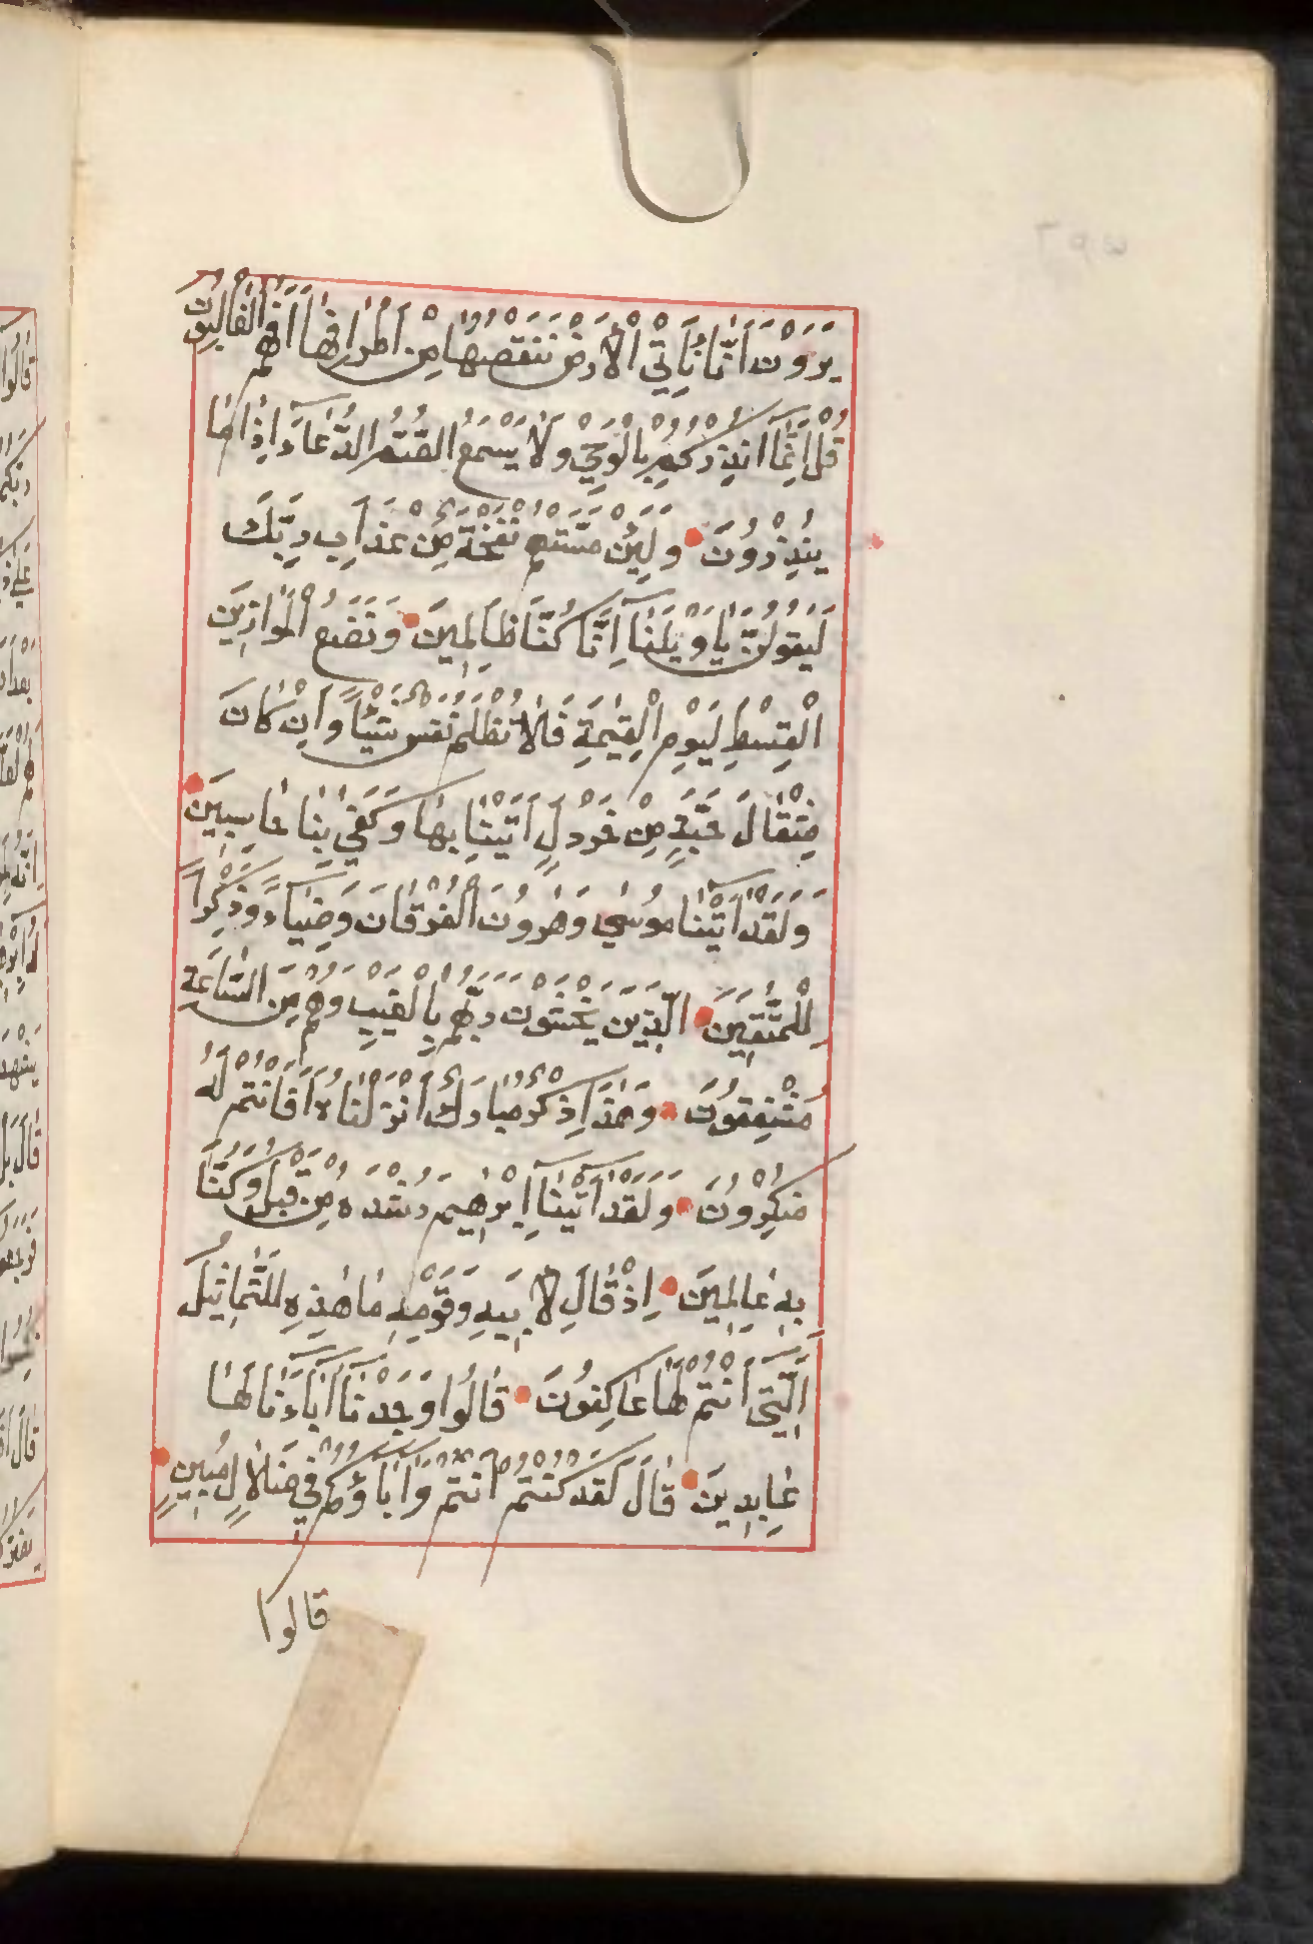 يَرَوْنَ أَنَّا نَأْتِي الْأَرْضَ نَنْقُصُهَا مِنْ أَطْرَافِهَا أَفَهُمُ الْغَالِبُونَ
قُلْ إِنَّمَا أُنْذِرُكُمْ بِالْوَحْيِ وَلَا يَسْمَعُ الصُّمُّ الدُّعَاءَ إِذَا مَا
يُنْذَرُونَ وَلَئِنْ مَسَّتْهُمْ نَفْحَةٌ مِنْ عَذَابِ رَبِّكَ
لَيَقُولُنَّ يَا وَيْلَنَا إِنَّا كُنَّا ظَالِمِينَ وَنَضَعُ الْمَوَازِينَ
الْقِسْطَ لِيَوْمِ الْقِيٰمَةِ فَلَا تُظْلَمُ نَفْسٌ شَيْئًا وَإِنْ كَانَ
مِثْقَالَ حَبَّةٍ مِنْ خَرْدَلٍ أَتَيْنَا بِهَا وَكَفَىٰ بِنَا حَاسِبِينَ
وَلَقَدْ آتَيْنَا مُوسَىٰ وَهٰرُونَ الْفُرْقَانَ وَضِيَاءً وَذِكْرًا
لِلْمُتَّقِينَ الَّذِينَ يَخْشَوْنَ رَبَّهُمْ بِالْغَيْبِ وَهُمْ مِنَ السَّاعَةِ
مُشْفِقُونَ وَهٰذَا ذِكْرٌ مُبَارَكٌ أَنْزَلْنَاهُ أَفَأَنْتُمْ لَهُ
مُنْكِرُونَ وَلَقَدْ آتَيْنَا إِبْرٰهِيمَ رُشْدَهُ مِنْ قَبْلُ وَكُنَّا
بِهِ عَالِمِينَ إِذْ قَالَ لِأَبِيهِ وَقَوْمِهِ مَا هٰذِهِ التَّمَاثِيلُ
الَّتِي أَنْتُمْ لَهَا عَاكِفُونَ قَالُوا وَجَدْنَا آبَاءَنَا لَهَا
عَابِدِينَ قَالَ لَقَدْ كُنْتُمْ أَنْتُمْ وَآبَاؤُكُمْ فِي ضَلَالٍ مُبِينٍ
قالوا